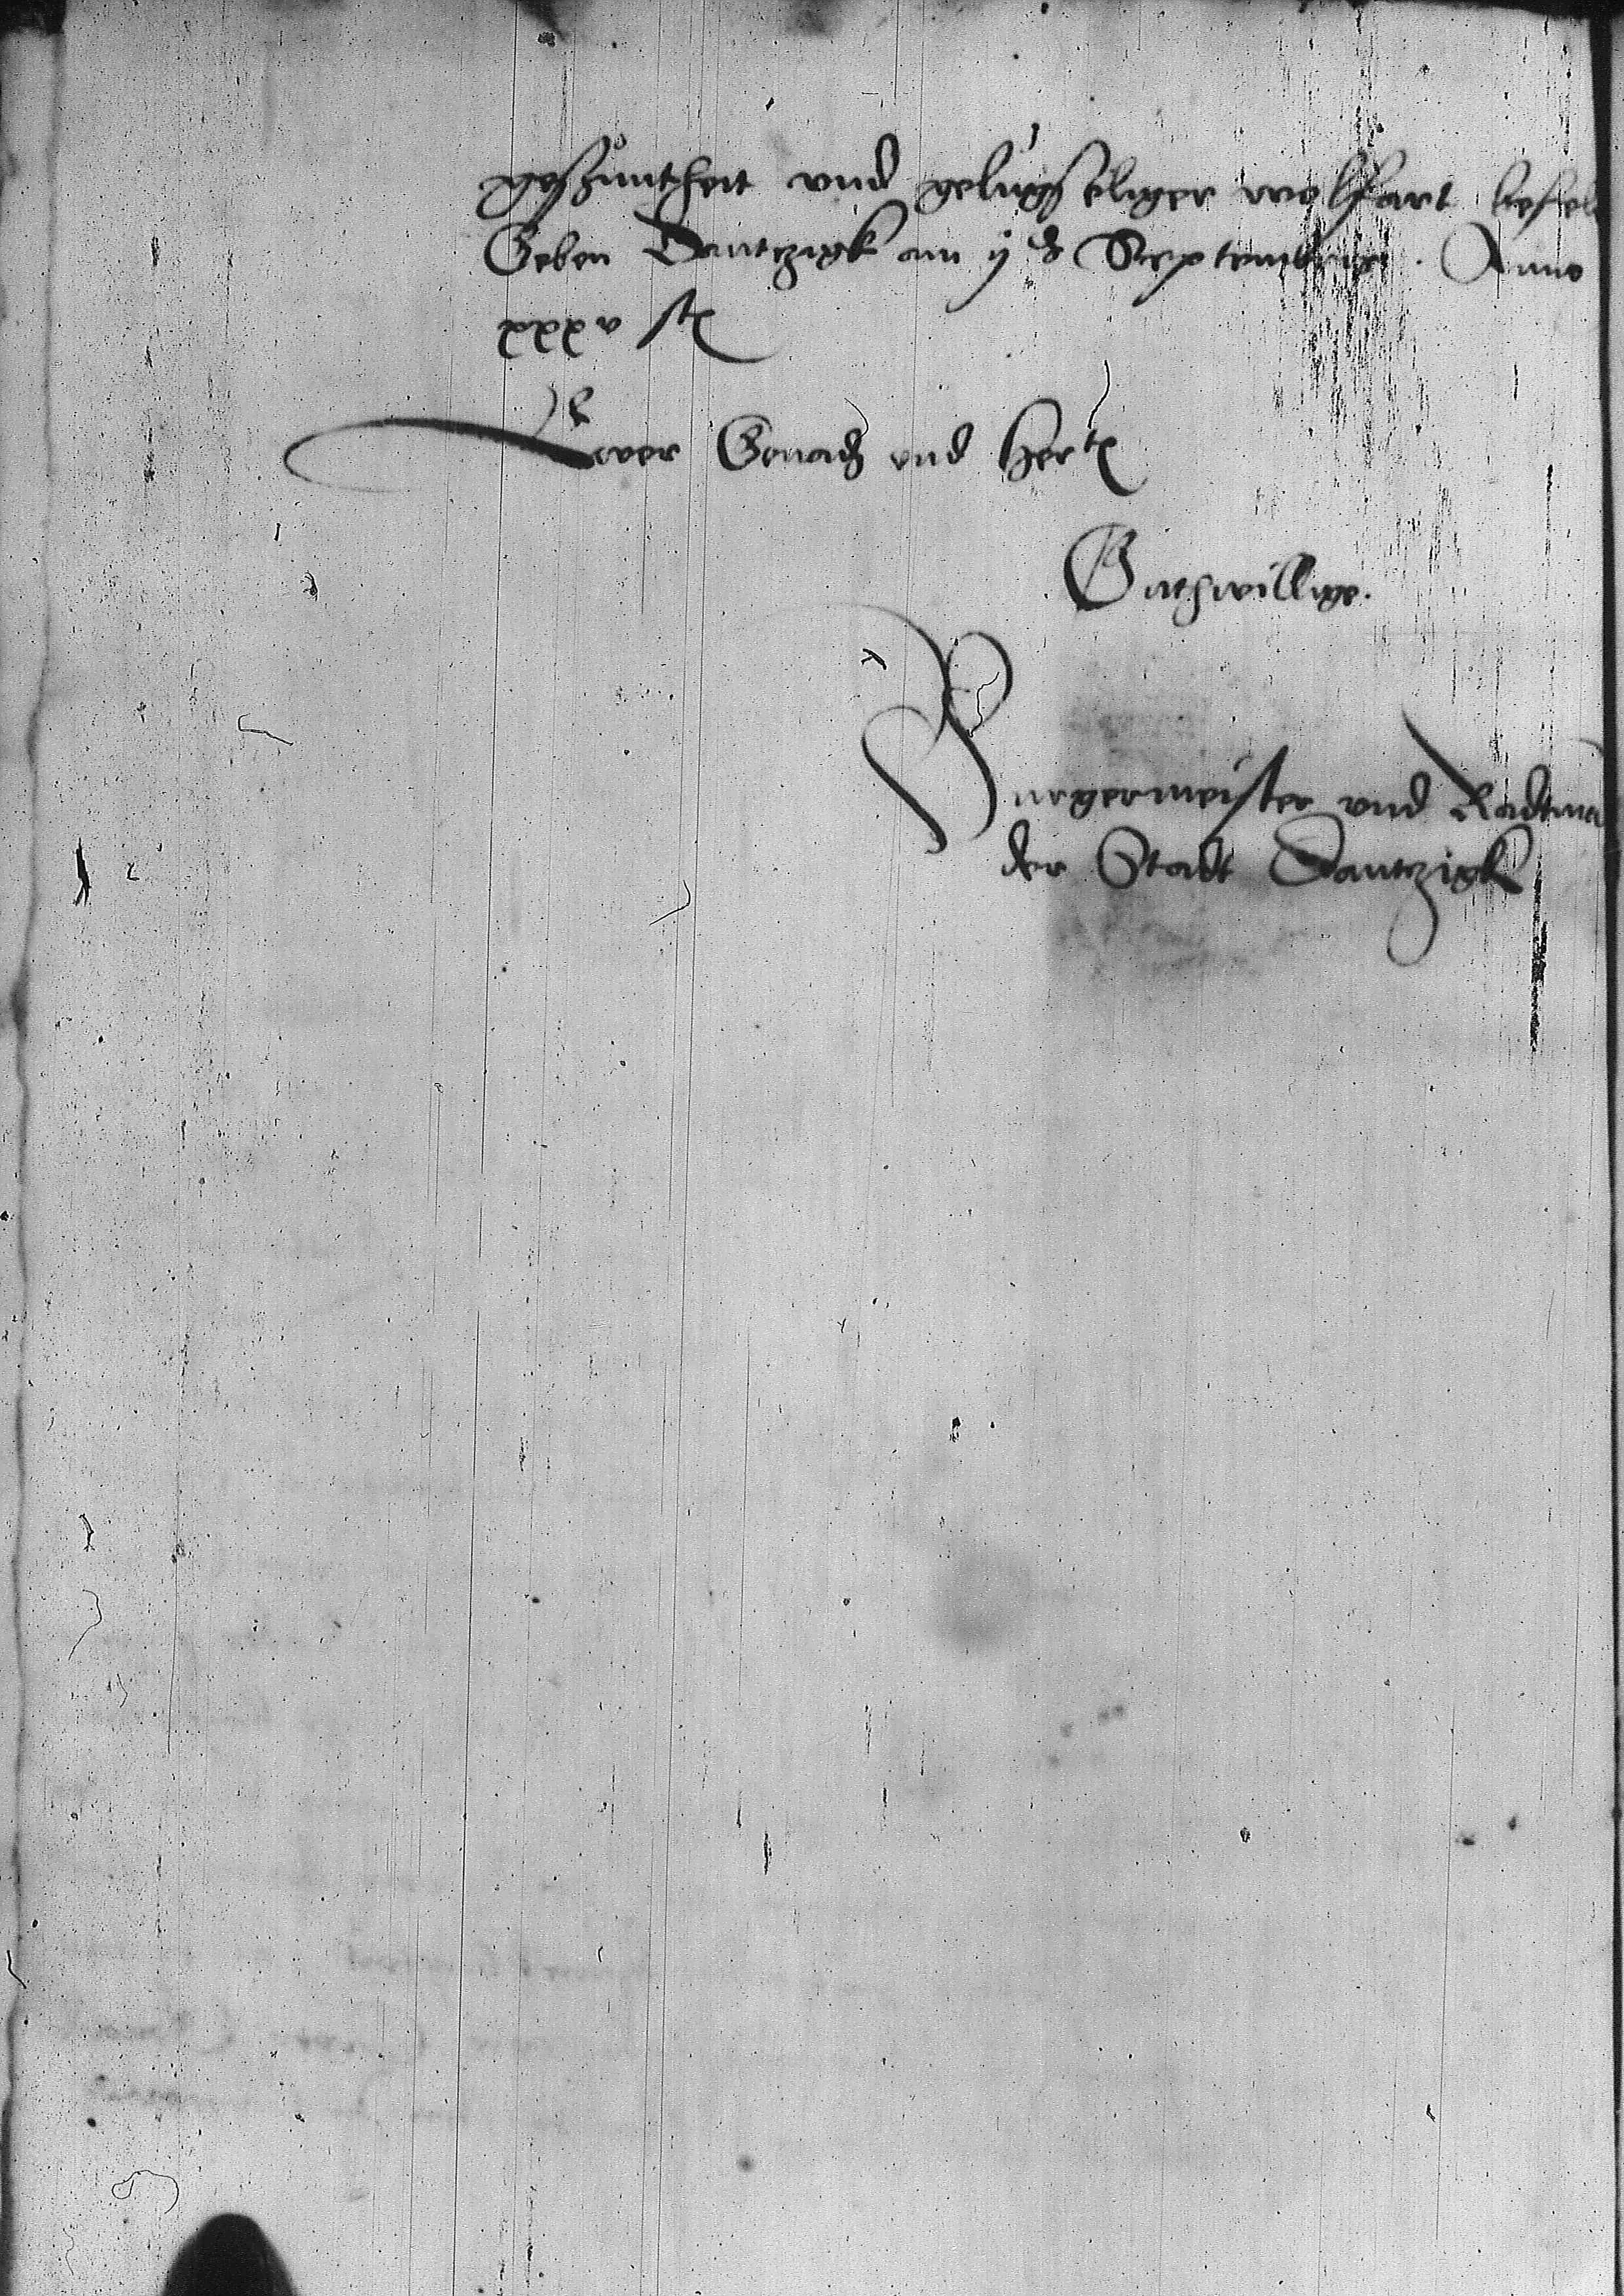 geszuntheit vnd gelugszeliger wolfart befel
Geben Dantczigk am ij Septembris. Anno
xxxv
Ewer Gnad vnd Her
Guthwillige.
Burgermeister vnd Radtma
der Stadt Dantczigk